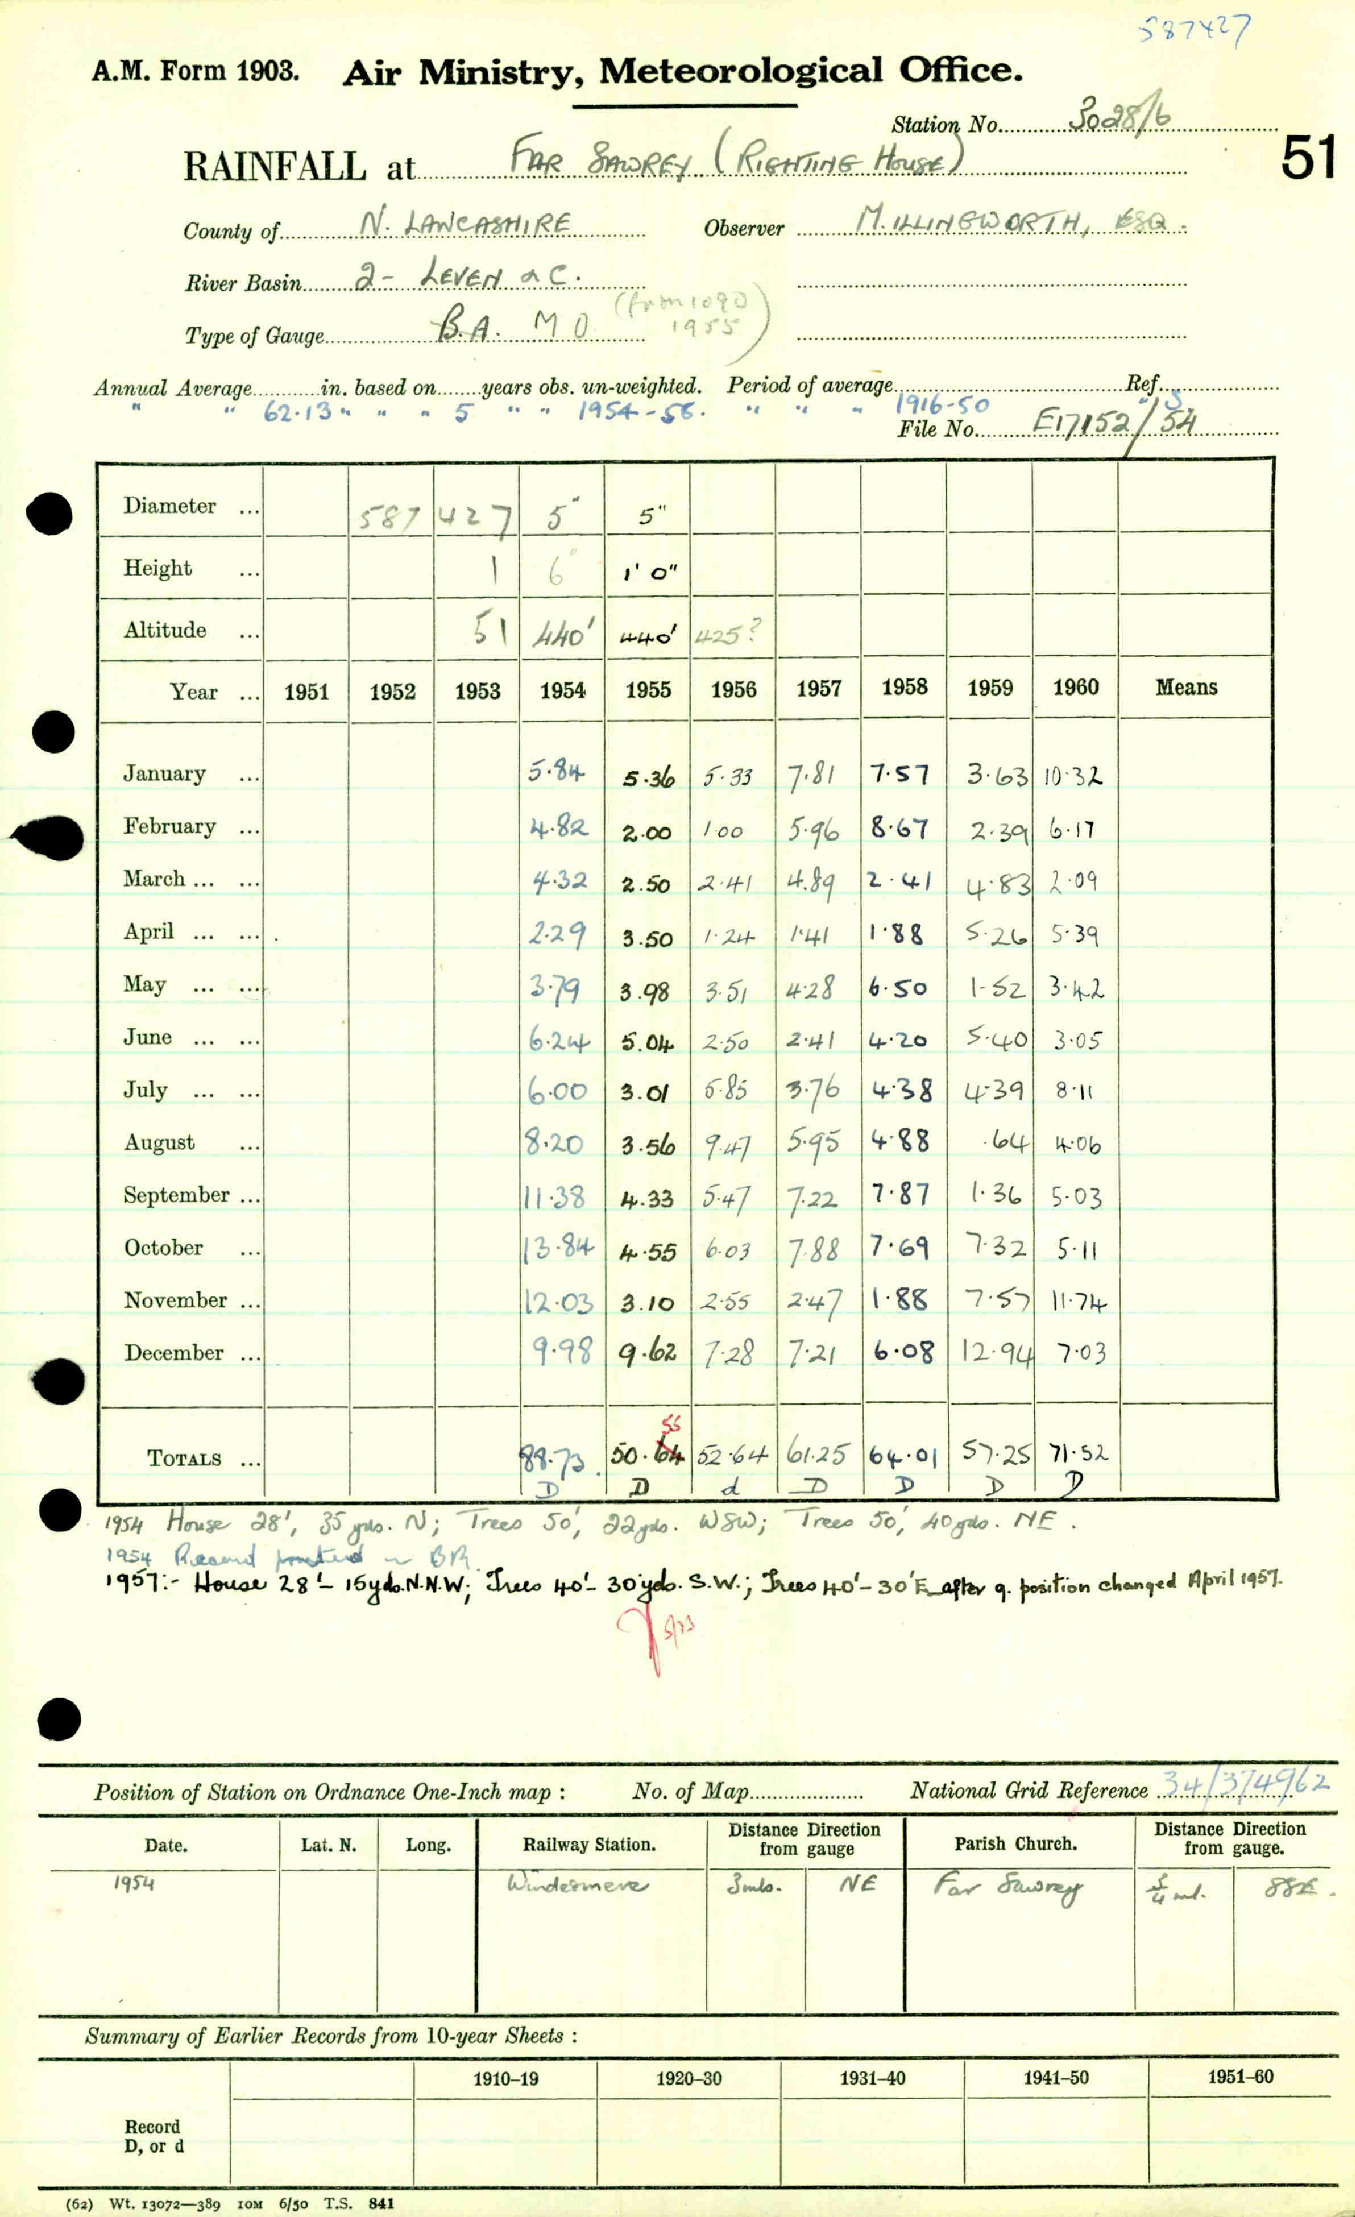 587427
A.M. Form 1903. Air Ministry, Meteorological Office.
Station No. 3028/6
51
RAINFALL at FAR SAWREY (RIGHTING HOUSE)
County of N. LANCASHIRE Observer M. ILLINGWORTH, ESQ.
River Basin 2- LEVEN & C.
Type of Gauge B.A. M O (from 1090 1955)
Annual Average in. based on years obs. un-weighted. Period of average Ref.
" " 62.13 " " " 5 " " 1954-58. " " " 1916-50 "
File No. E17152/54
Diameter ... 587 427 5" 5"
Height ... 1 6" 1' 0"
Altitude ... 51 440' 440' 425?
Year ... 1951 1952 1953 1954 1955 1956 1957 1958 1959 1960 Means
January ... 5.84 5.36 5.33 7.81 7.57 3.63 10.32
February ... 4.82 2.00 1.00 5.96 8.67 2.39 6.17
March ... ... 4.32 2.50 2.41 4.89 2.41 4.83 2.09
April ... ... 2.29 3.50 1.24 1.41 1.88 5.26 5.39
May ... ... 3.79 3.98 3.51 4.28 6.50 1.52 3.42
June ... ... 6.24 5.04 2.50 2.41 4.20 5.40 3.05
July ... ... 6.00 3.01 5.85 3.76 4.38 4.39 8.11
August ... 8.20 3.56 9.47 5.95 4.88 .64 4.06
September ... 11.38 4.33 5.47 7.22 7.87 1.36 5.03
October ... 13.84 4.55 6.03 7.88 7.69 7.32 5.11
November ... 12.03 3.10 2.55 2.47 1.88 7.57 11.74
December ... 9.98 9.62 7.28 7.21 6.08 12.94 7.03
55
TOTALS ... 88.73 50.64 52.64 61.25 64.01 57.25 71.52
D D d D D D D
1954 House 28', 35 yds. N; Trees 50', 22 yds. WSW; Trees 50', 40 yds. NE.
1954 Record printed in BR.
1957:- House 28' - 15 yds. N.N.W; Trees 40' - 30 yds. S.W.; Trees 40' - 30' E after g. position changed April 1957.
5/73
Position of Station on Ordnance One-Inch map : No. of Map National Grid Reference 34/374962
Date. Lat. N. Long. Railway Station. Distance Direction from gauge Parish Church. Distance Direction from gauge.
1954 Windermere 3 mls. NE Far Sawrey ml.
Summary of Earlier Records from 10-year Sheets :
1910–19 1920–30 1931–40 1941–50 1951–60
Record
D, or d
(62) Wt. 13072—389 10M 6/50 T.S. 841